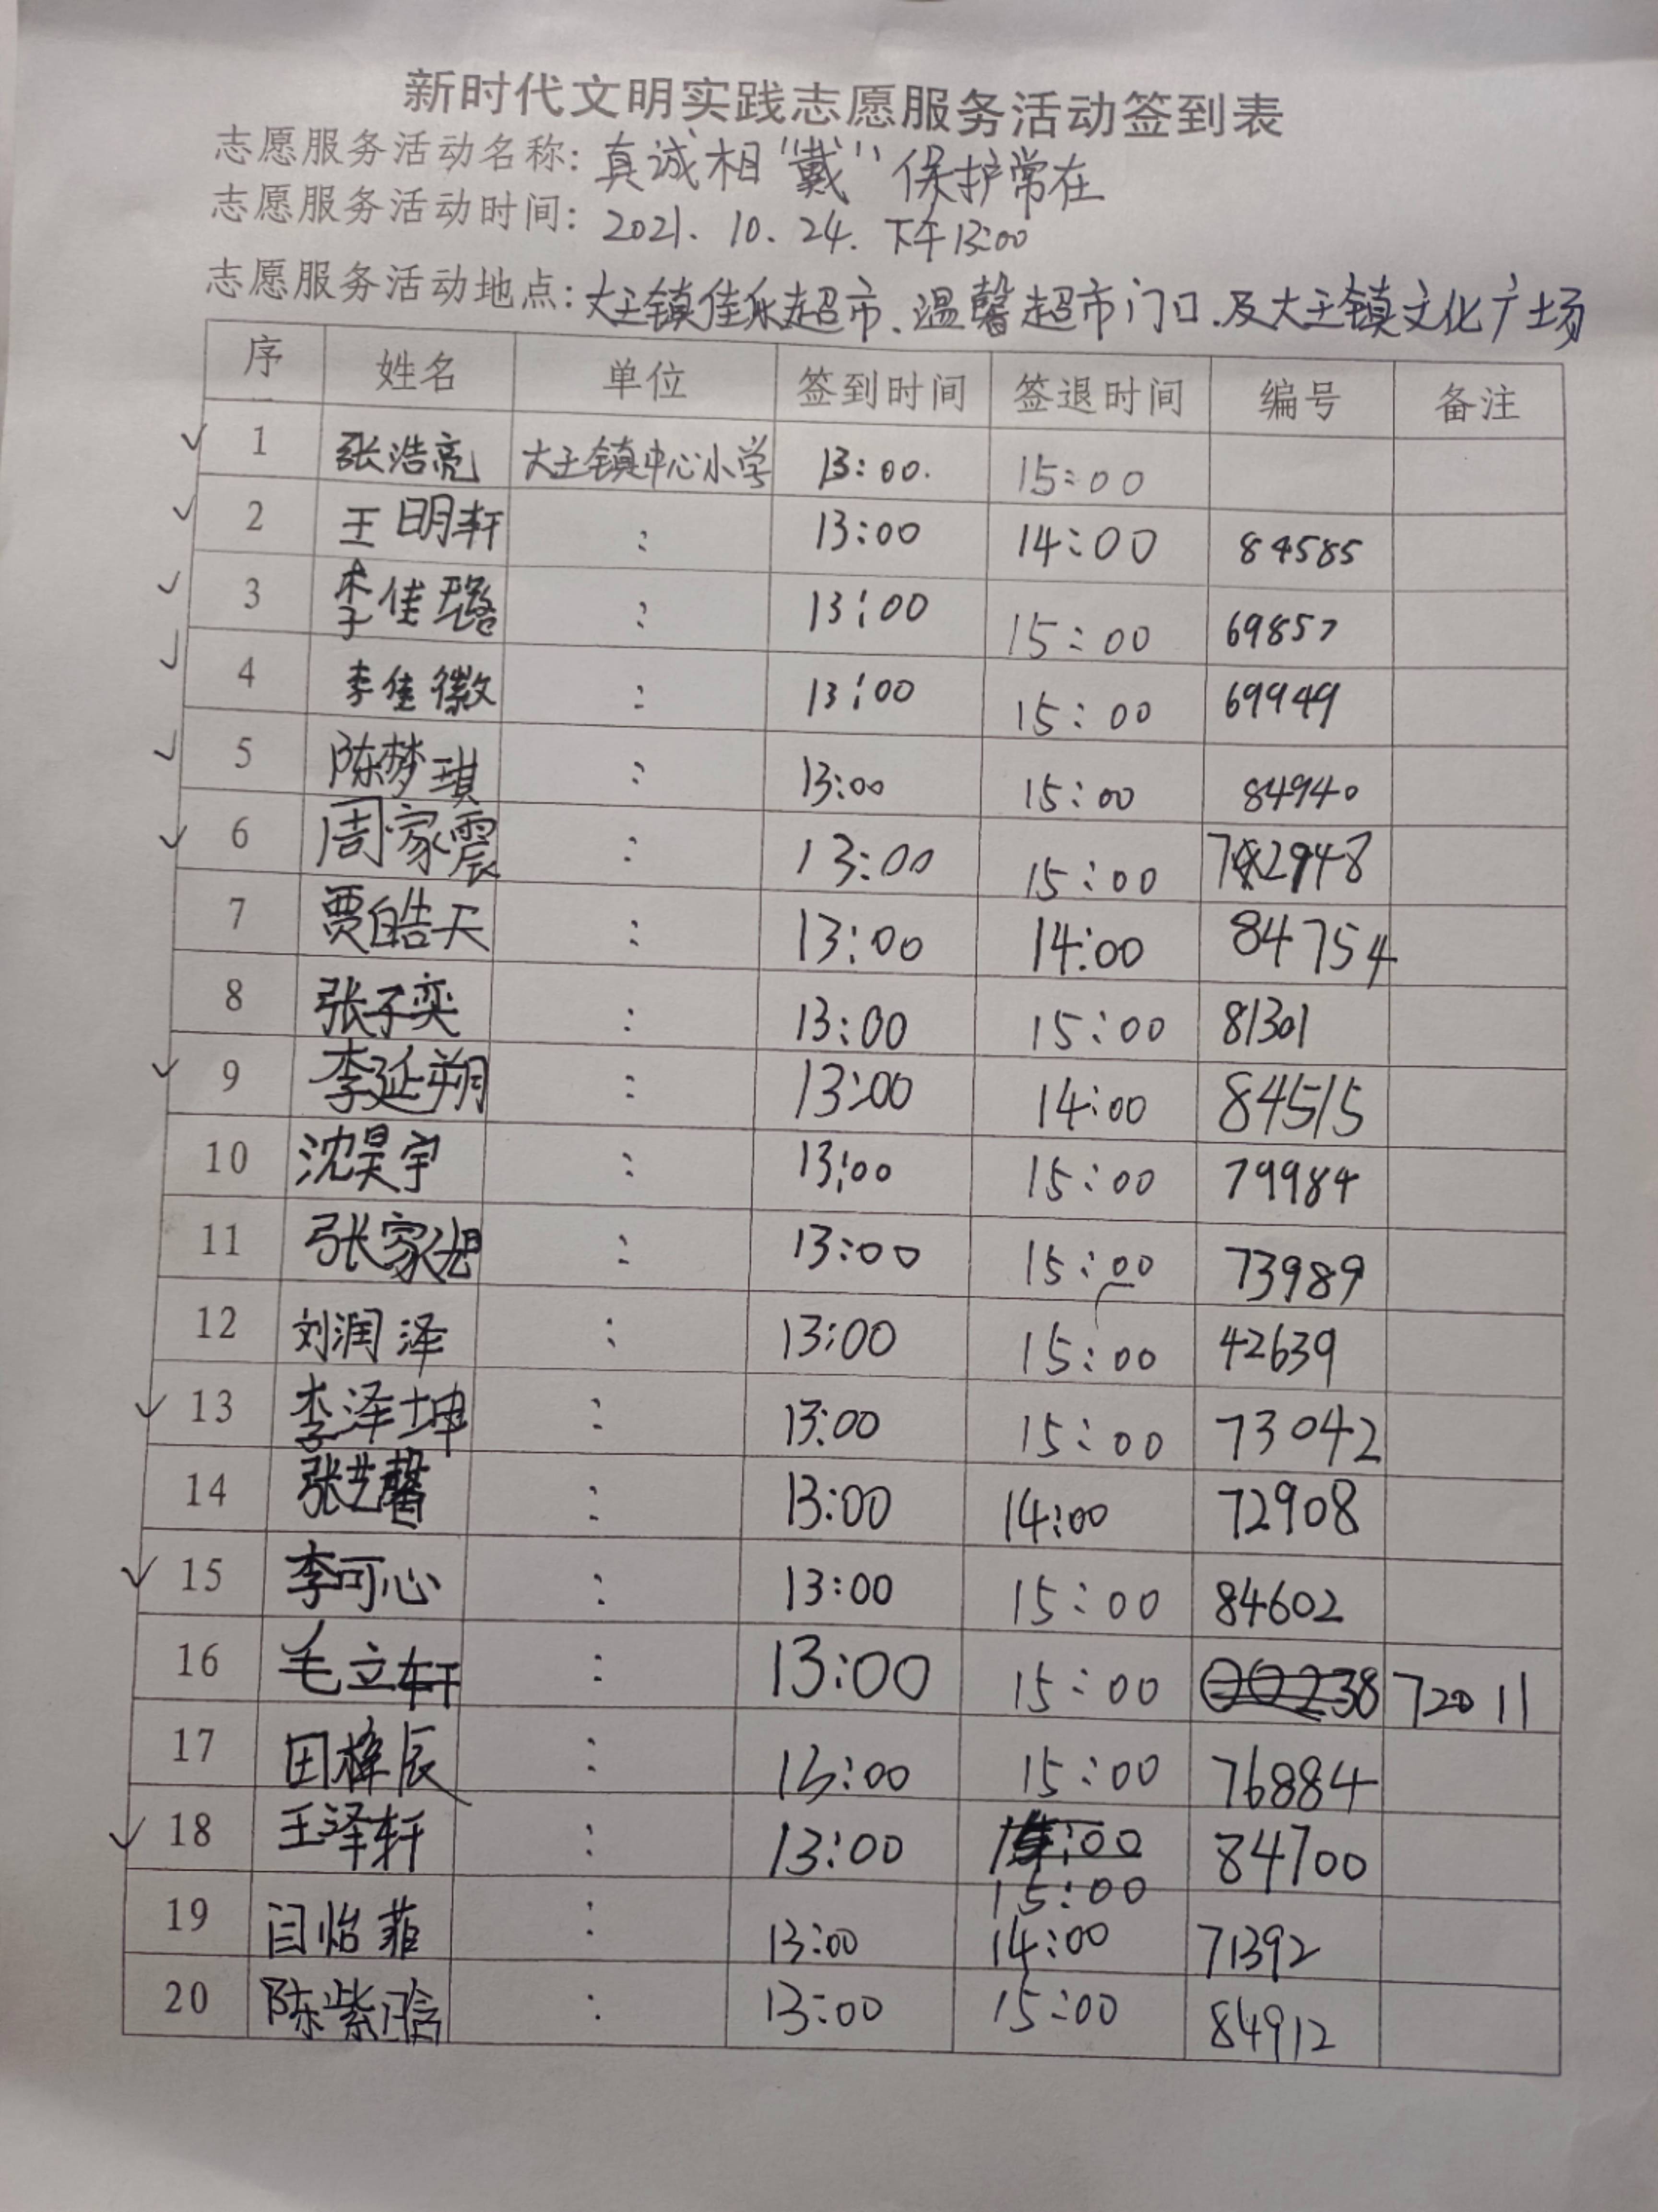 新时代文明实践志愿服务活动签到表
志愿服务活动名称: 真诚相"戴" 保护常在
志愿服务活动时间: 2021. 10. 24. 下午13:00
志愿服务活动地点: 大王镇佳乐超市、温馨超市门口、及大王镇文化广场
序 姓名 单位 签到时间 签退时间 编号 备注
✓ 1 张浩亮 大王镇中心小学 13:00. 15:00
✓ 2 王明轩 : 13:00 14:00 84585
✓ 3 李佳璐 : 13:00 15:00 69857
✓ 4 李佳徽 : 13:00 15:00 69949
✓ 5 陈梦琪 : 13:00 15:00 84940
✓ 6 周家震 : 13:00 15:00 72948
7 贾皓天 : 13:00 14:00 84754
8 张子奕 : 13:00 15:00 81301
✓ 9 李延朔 : 13:00 14:00 84515
10 沈昊宇 : 13:00 15:00 79984
11 张家 : 13:00 15:00 73989
12 刘润泽 : 13:00 15:00 42639
✓ 13 李泽坤 : 13:00 15:00 73042
14 张艺馨 : 13:00 14:00 72908
✓ 15 李可心 : 13:00 15:00 84602
16 毛立轩 : 13:00 15:00 72011
17 田梓辰 : 13:00 15:00 76884
✓ 18 王泽轩 : 13:00 15:00 84700
19 闫怡菲 : 13:00 14:00 71392
20 陈紫晗 : 13:00 15:00 84912